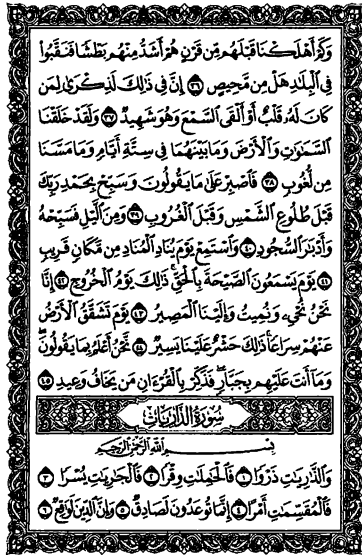 وَكَمْ أَهْلَكْنَا قَبْلَهُم مِّن قَرْنٍ هُمْ أَشَدُّ مِنْهُم بَطْشًا فَنَقَّبُوا
فِي الْبِلَادِ هَلْ مِن مَّحِيصٍ ٣٦ إِنَّ فِي ذَٰلِكَ لَذِكْرَىٰ لِمَن
كَانَ لَهُ قَلْبٌ أَوْ أَلْقَى السَّمْعَ وَهُوَ شَهِيدٌ ٣٧ وَلَقَدْ خَلَقْنَا
السَّمَٰوَٰتِ وَالْأَرْضَ وَمَا بَيْنَهُمَا فِي سِتَّةِ أَيَّامٍ وَمَا مَسَّنَا
مِن لُّغُوبٍ ٣٨ فَاصْبِرْ عَلَىٰ مَا يَقُولُونَ وَسَبِّحْ بِحَمْدِ رَبِّكَ
قَبْلَ طُلُوعِ الشَّمْسِ وَقَبْلَ الْغُرُوبِ ٣٩ وَمِنَ الَّيْلِ فَسَبِّحْهُ
وَأَدْبَٰرَ السُّجُودِ ٤٠ وَاسْتَمِعْ يَوْمَ يُنَادِ الْمُنَادِ مِن مَّكَانٍ قَرِيبٍ
٤١ يَوْمَ يَسْمَعُونَ الصَّيْحَةَ بِالْحَقِّ ذَٰلِكَ يَوْمُ الْخُرُوجِ ٤٢ إِنَّا
نَحْنُ نُحْيِي وَنُمِيتُ وَإِلَيْنَا الْمَصِيرُ ٤٣ يَوْمَ تَشَقَّقُ الْأَرْضُ
عَنْهُمْ سِرَاعًا ذَٰلِكَ حَشْرٌ عَلَيْنَا يَسِيرٌ ٤٤ نَّحْنُ أَعْلَمُ بِمَا يَقُولُونَ
وَمَا أَنتَ عَلَيْهِم بِجَبَّارٍ فَذَكِّرْ بِالْقُرْءَانِ مَن يَخَافُ وَعِيدِ ٤٥
سُورَةُ الذَّارِيَاتِ
بِسْمِ اللَّهِ الرَّحْمَٰنِ الرَّحِيمِ
وَالذَّٰرِيَٰتِ ذَرْوًا ١ فَالْحَٰمِلَٰتِ وِقْرًا ٢ فَالْجَٰرِيَٰتِ يُسْرًا ٣
فَالْمُقَسِّمَٰتِ أَمْرًا ٤ إِنَّمَا تُوعَدُونَ لَصَادِقٌ ٥ وَإِنَّ الدِّينَ لَوَٰقِعٌ ٦